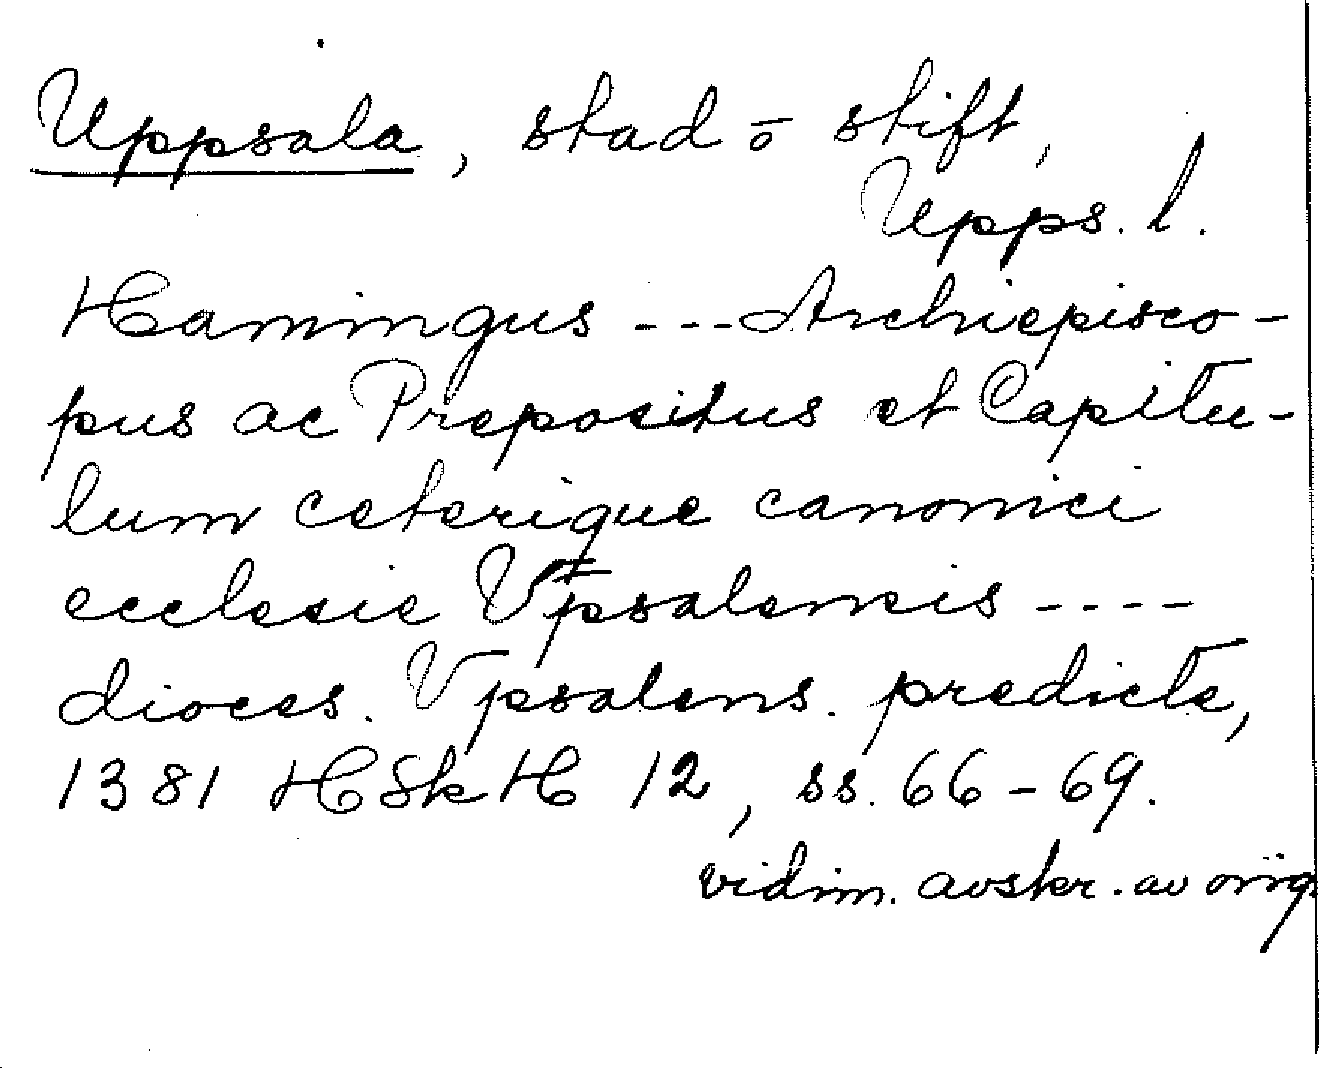 Uppsala, stad ō stift,
Upps. l.
Hamingus --- Archiepisco-
pus ac Prepositus et Capitu-
lum ceterique canonici
ecclesie Vpsalensis ----
dioces. Vpsalens. predicte,
1381 HSkH 12, ss. 66-69.
vidim. avskr. av orig.